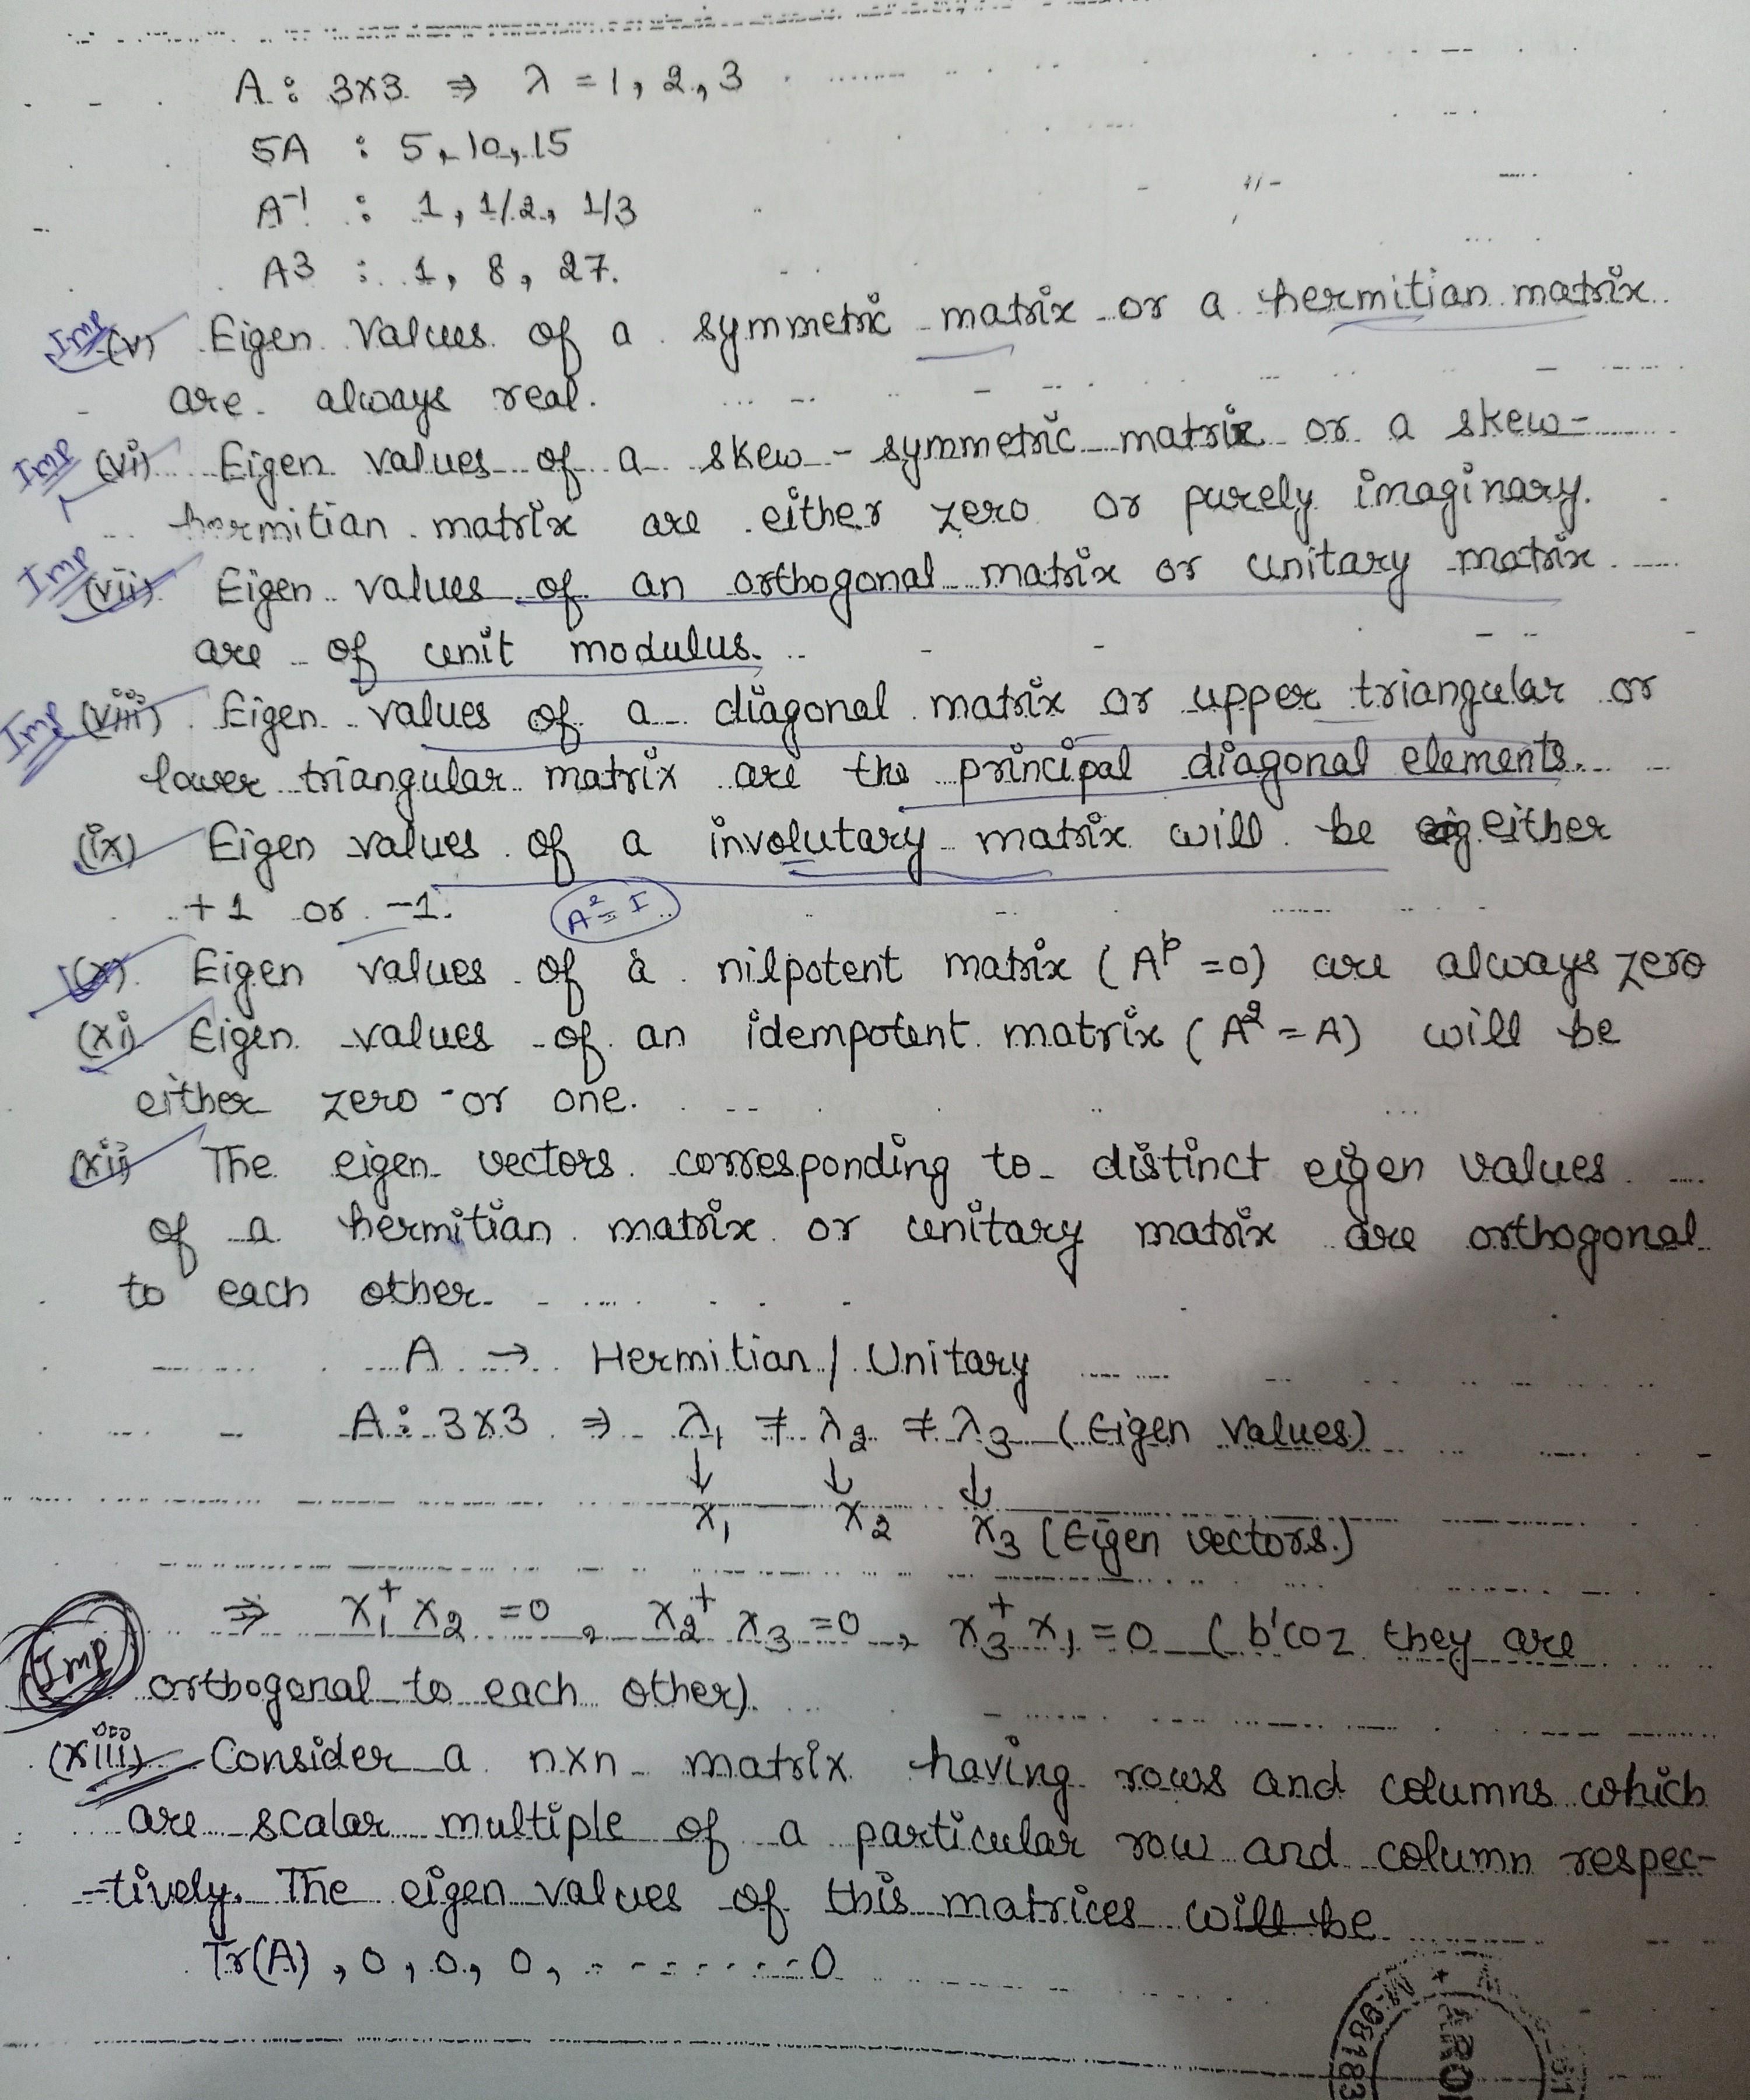 A : 3x3 ⇒ λ = 1, 2, 3
5A : 5, 10, 15
A⁻¹ : 1, 1/2, 1/3
A3 : 1, 8, 27.
Imp (v) Eigen Values of a symmetric matrix or a hermitian matrix
are always real.
Imp (vi) Eigen values of a skew - symmetric matrix or a skew-
hermitian matrix are either zero or purely imaginary.
Imp (vii) Eigen values of an orthogonal matrix or unitary matrix
are of unit modulus.
Imp (viii) Eigen values of a diagonal matrix or upper triangular or
lower triangular matrix are the principal diagonal elements.
(ix) Eigen values of a involutary matrix will be either
+1 or -1. A² = I
(x) Eigen values of a nilpotent matrix (Aᵖ = 0) are always zero
(xi) Eigen values of an idempotent matrix (A² = A) will be
either zero or one.
(xii) The eigen vectors corresponding to distinct eigen values
of a hermitian matrix or unitary matrix are orthogonal
to each other.
A → Hermitian / Unitary
A : 3x3 ⇒ λ₁ ≠ λ₂ ≠ λ₃ (Eigen values)
↓ ↓ ↓
x₁ x₂ x₃ (Eigen vectors.)
⇒ x₁⁺ x₂ = 0, x₂⁺ x₃ = 0, x₃⁺ x₁ = 0 (b'coz they are
Imp orthogonal to each other).
(xiii) Consider a nxn matrix having rows and columns which
are scalar multiple of a particular row and column respec-
-tively. The eigen values of this matrices will be
Tr(A), 0, 0, 0, - - - - - - - 0